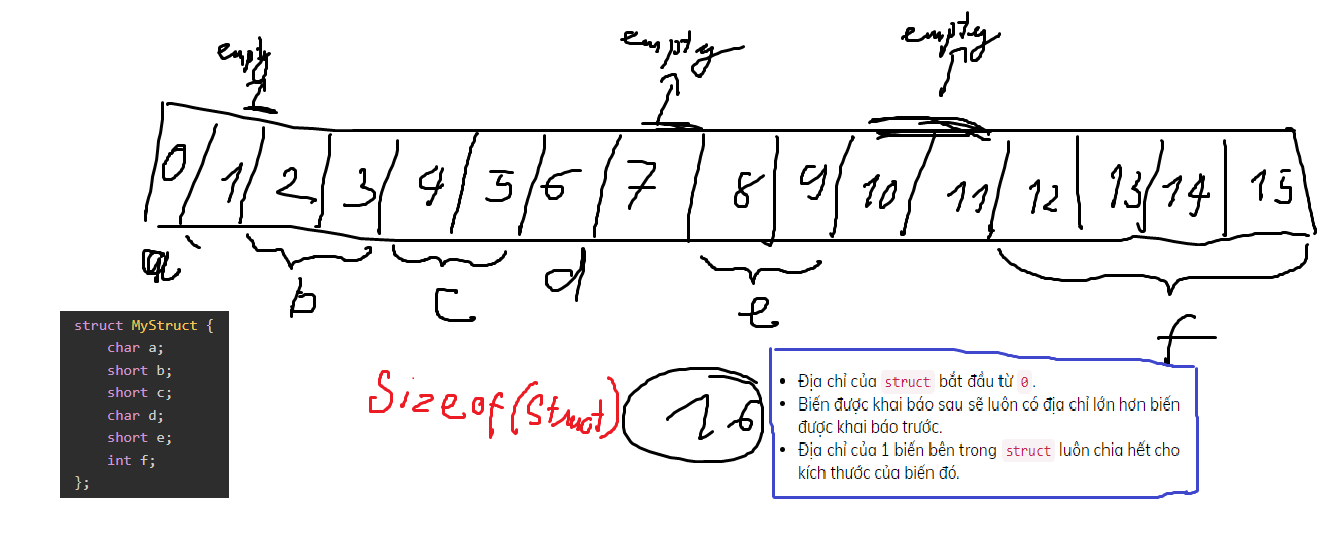 empty empty empty
0 1 2 3 4 5 6 7 8 9 10 11 12 13 14 15
a b c d e f
struct MyStruct {
char a;
short b;
short c;
char d;
short e;
int f;
};
Sizeof(Struct) 16
Địa chỉ của struct bắt đầu từ 0.
Biến được khai báo sau sẽ luôn có địa chỉ lớn hơn biến
được khai báo trước.
Địa chỉ của 1 biến bên trong struct luôn chia hết cho
kích thước của biến đó.